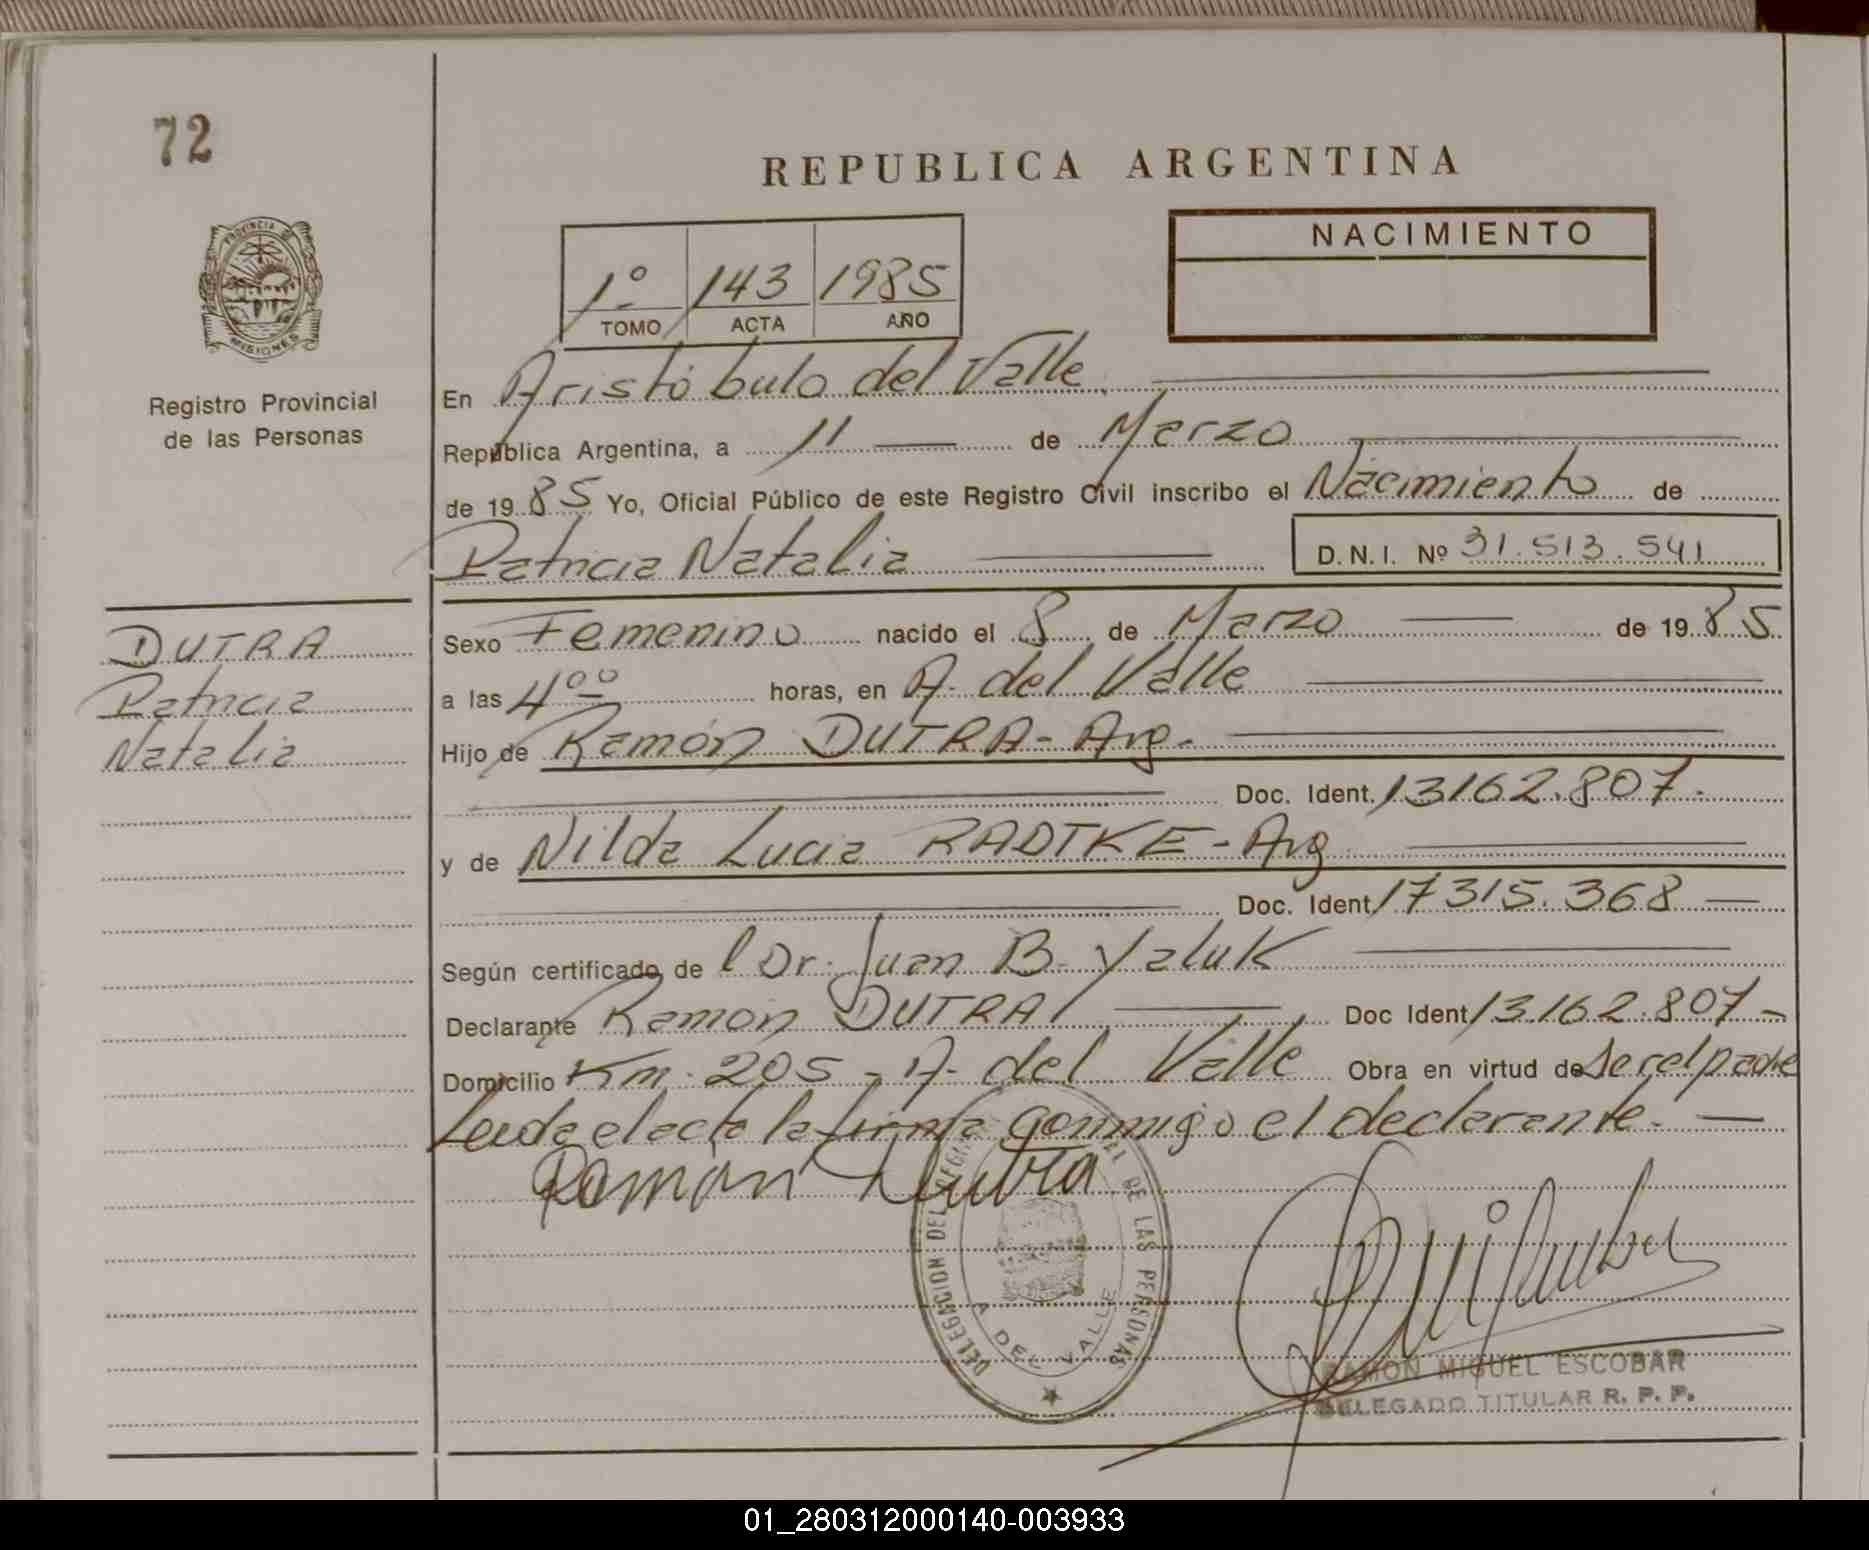 72
REPUBLICA ARGENTINA
PROVINCIA DE
MISIONES
Registro Provincial
de las Personas
1º 143 1985
TOMO ACTA AÑO
NACIMIENTO
En Aristóbulo del Valle
República Argentina, a 11 de Marzo
de 1985 Yo, Oficial Público de este Registro Civil inscribo el Nacimiento de
Patricia Natalia D.N.I. Nº 31.513.541
DUTRA
Patricia
Natalia
Sexo Femenino nacido el 8 de Marzo de 1985
a las 4ºº horas, en A. del Valle
Hijo de Ramón DUTRA - Arg.
Doc. Ident. 13162.807.
y de Nilda Lucia RADTKE - Arg
Doc. Ident. 17315.368
Según certificado de l Dr. Juan B. Yaluk
Declarante Ramon DUTRA Doc Ident 13162.807
Domicilio Km. 205 - A. del Valle Obra en virtud de Ser el padre
Leida el acta la firma conmigo el declarante.
Ramon Dutra
DELEGACION DEL DE LAS PERSONAS
A DEL VALLE
RAMON MIGUEL ESCOBAR
DELEGADO TITULAR R. P. P.
01_280312000140-003933